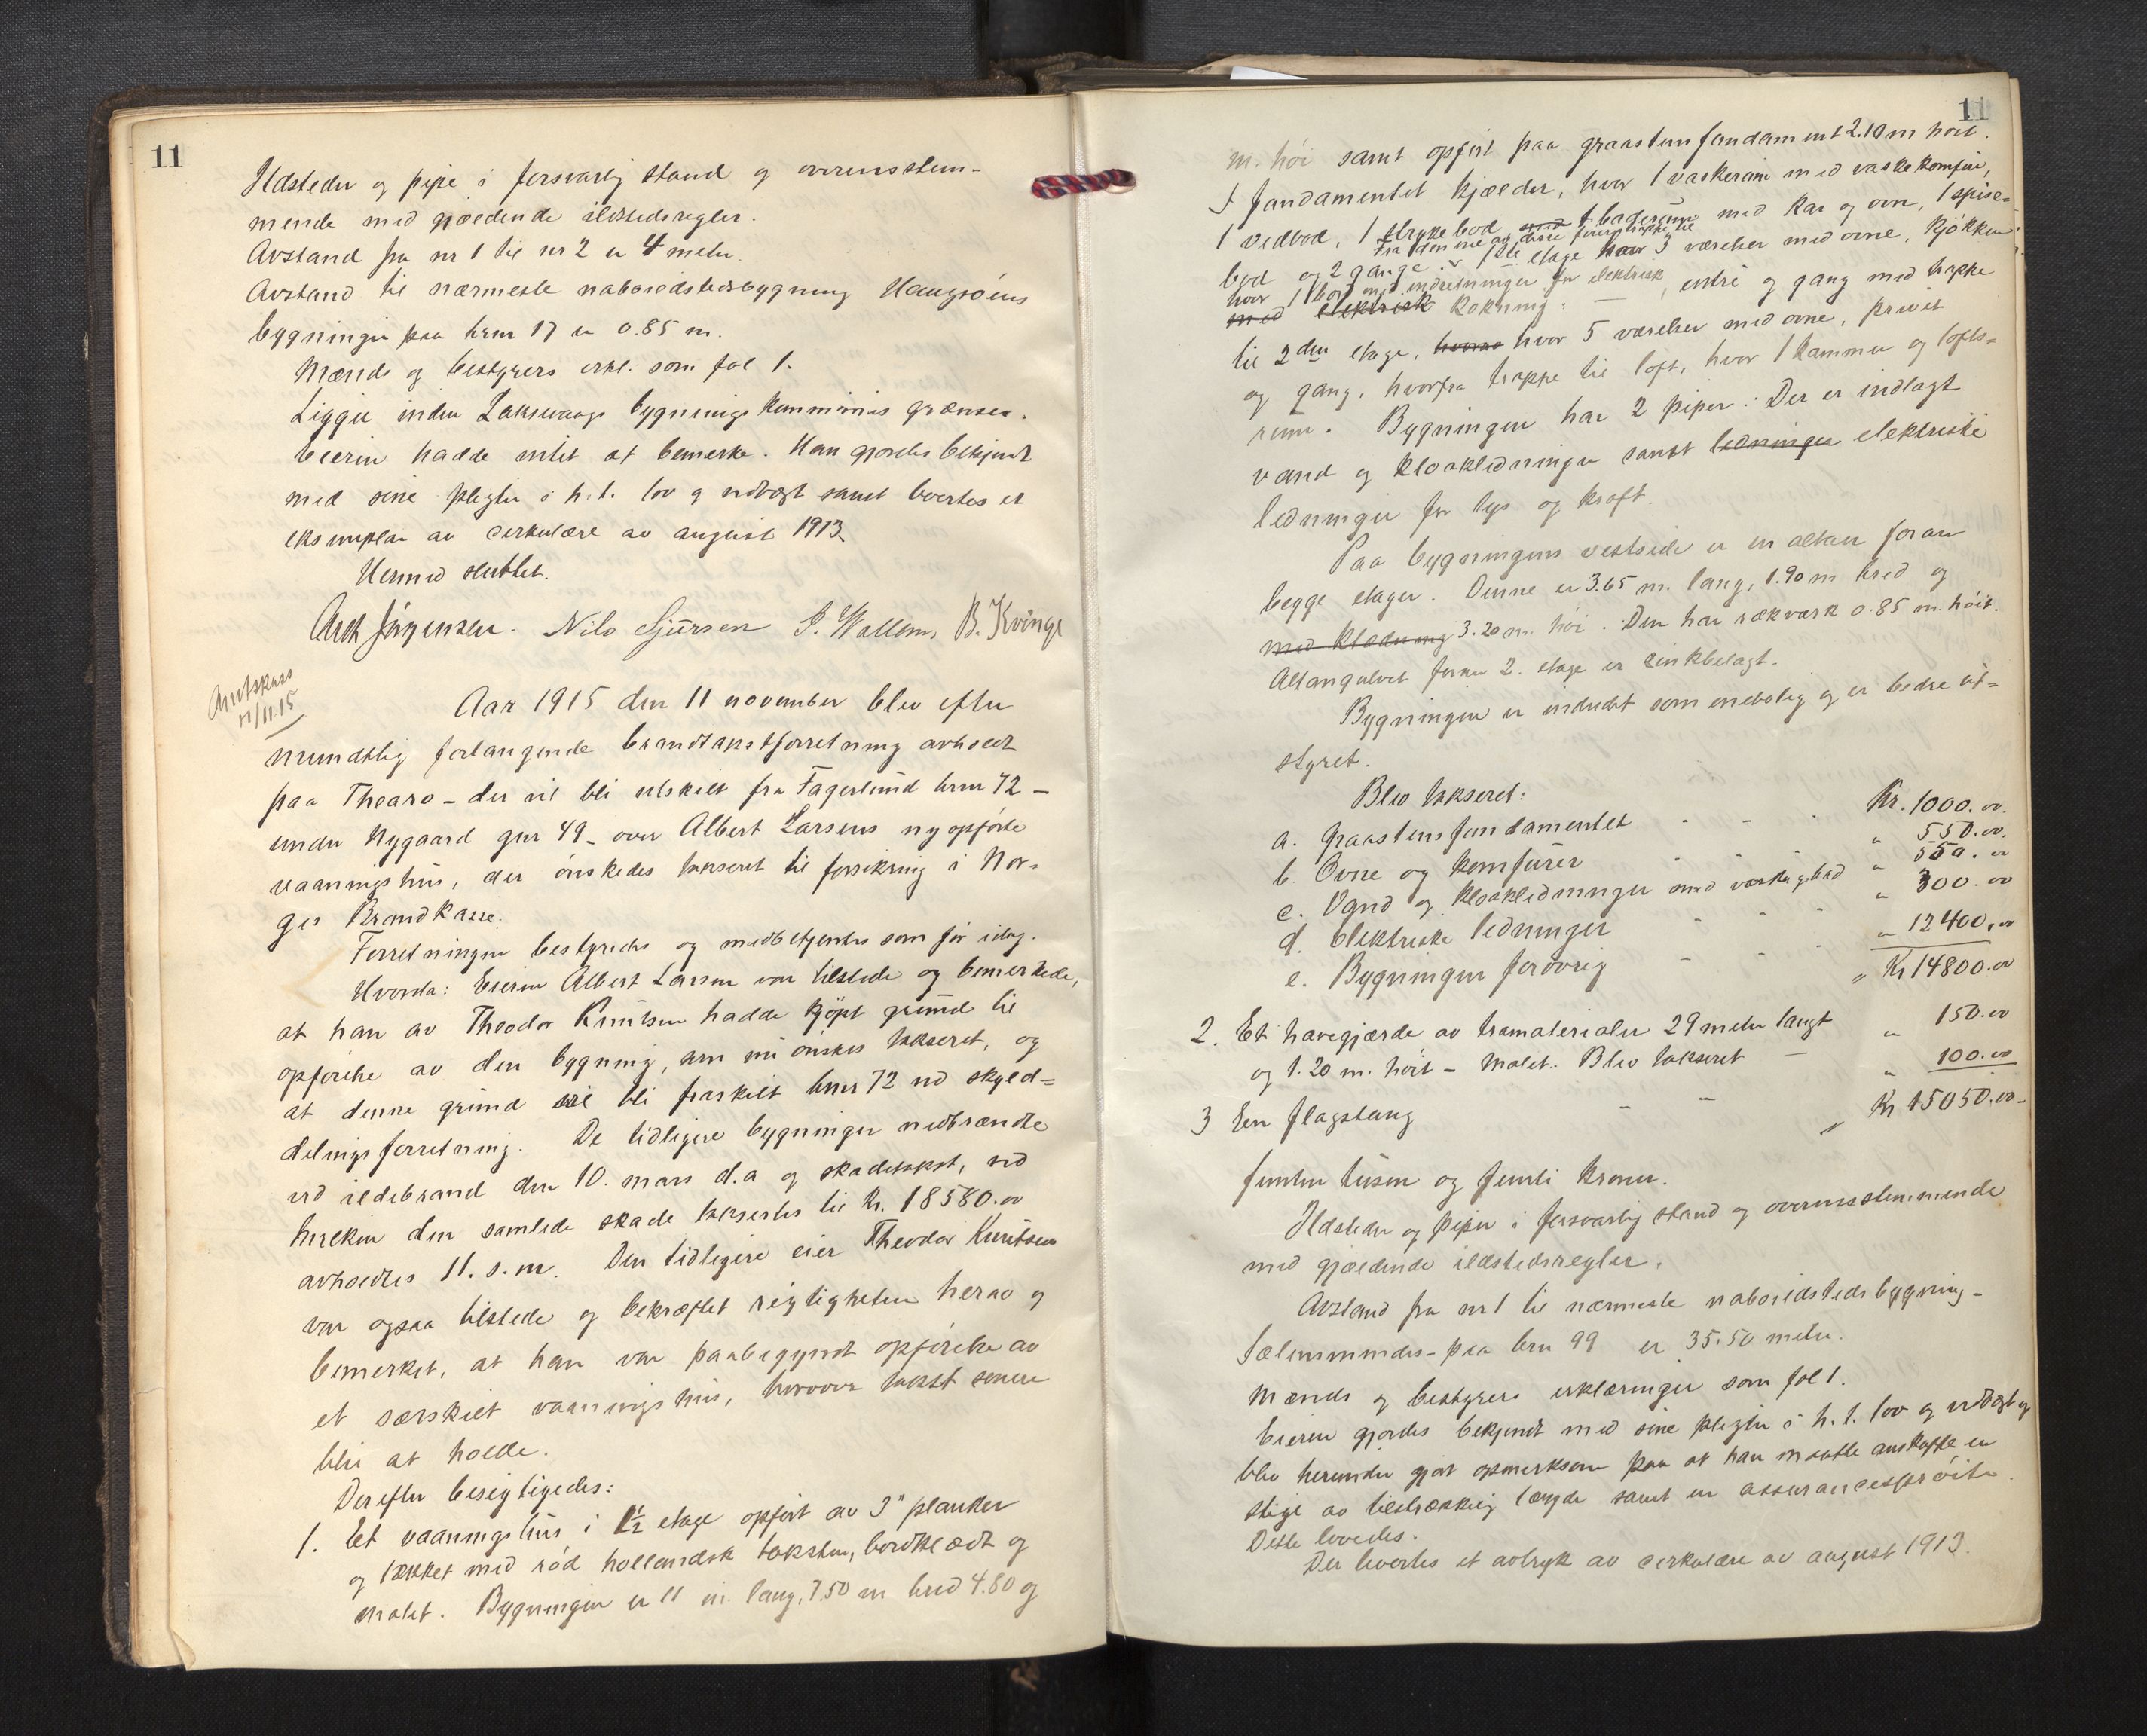 11
Ildsteder og pipe i forsvarlig stand og overensstem-
mende med gjældende ildstedsregler.
Avstand fra nr 1 til nr 2 er 4 meter.
Avstand til nærmeste naboildstedsbygning Haugsöens
bygninger paa brnr 17 er 0.85 m.
Mænds og bestyrers erkl. som fol 1.
Ligger inden Laksevaags bygningskommunes grænser.
Eieren hadde intet at bemerke. Han gjordes bekjendt
med sine pligter i h. t. lov og vedtægt samt levertes et
eksemplar av cirkulære av august 1913.
Hermed sluttet.
Ant Jörgensen. Nils Sjursen P. Wallem, B. Kvinge
Amtskass
11/11.15
Aar 1915 den 11 november blev efter
mundtlig forlangende brandtakstforretning avholdt
paa Thearo – der vil bli utskilt fra Fagerlund brnr 72 –
under Nygaard gnr 49 – over Albert Larsens nyopförte
vaaningshus, der önskedes takseret til forsikring i Nor-
ges Brandkasse.
Forretningen bestyredes og medbetjentes som för idag.
Hvorda: Eieren Albert Larsen var tilstede og bemerkede,
at han av Theodor Knutsen hadde kjöpt grund til
opförelse av den bygning, som nu önskes takseret, og
at denne grund vil bli fraskilt brnr 72 ved skyld-
delingsforretning. De tidligere bygninger nedbrændte
ved ildebrand den 10. mars d.a og skadetakst, ved
hvilken den samlede skade taksertes til Kr. 18580.00
avholdtes 11. s.m. Den tidligere eier Theodor Knutsen
var ogsaa tilstede og bekræftet rigtigheten herav og
bemerket, at han var paabegyndt opförelse av
et særskilt vaaningshus, hvorover takst senere
blir at holde.
Derefter besigtigedes:
1. Et vaaningshus i 1½ etage opfört av 3" planker
og tækket med röd hollandsk taksten, bordklædt og
malet. Bygningen er 11 m. lang, 7.50 m bred 4.80 og
11
m. höi samt opfört paa graastensfundament 2.10 m höit.
I fundamentet kjælder, hvor 1 vaskerum med vaskekomfur,
1 vedbod, 1 strykebod med 1 baderum med kar og ovn, 1 spise-
bod og 2 gange. Fra den ene av disse förer trappe til 1ste etage hvor 3 værelser med ovne, kjökken
hvor 1 bord med indretninger for elektrisk
med elektrisk kokning. –, entré og gang med trappe
til 2den etage, hvorav hvor 5 værelser med ovne, privet
og gang, hvorfra trappe til loft, hvor 1 kammer og lofts-
rum. Bygningen har 2 piper. Der er indlagt
vand og kloakledninger samt ledninger elektriske
ledninger for lys og kraft.
Paa bygningens vestside er en altan foran
begge etager. Denne er 3.65 m. lang, 1.90 m bred og
med klædning 3.20 m. höi. Den har rækværk 0.85 m. höit.
Altangulvet foran 2. etage er zinkbelagt.
Bygningen er indredet som enebolig og er bedre ut-
styret.
Blev takseret:
a. Graastensfundamentet - - - Kr. 1000.00.
b. Ovne og komfurer - - " 550.00.
c. Vand og kloakledninger med vask og bad " 550.00
d. Elektriske ledninger - - - " 300.00
e. Bygningen forövrig - - - " 12400.00
" Kr 14800.00
2. Et havegjærde av træmaterialer 29 meter langt
og 1.20 m. höit – malet. Blev takseret – " 150.00
3 En flagstang - - " 100.00
" Kr 15050.00 –
femten tusen og femti kroner.
Ildsteder og piper i forsvarlig stand og overensstemmende
med gjældende ildstedsregler.
Avstand fra nr 1 til nærmeste naboildstedsbygning –
Sælensmindes – paa brn 99 er 35.50 meter.
Mænds og bestyrers erklæringer som fol 1.
Eieren gjordes bekjendt med sine pligter i h. t. lov og vedtægt og
blev herunder gjort opmerksom paa at han maatte anskaffe en
stige av tilstrækkelig længde samt en assurancesspröite.
Dette lovedes.
Der levertes et avtryk av cirkulære av august 1913.